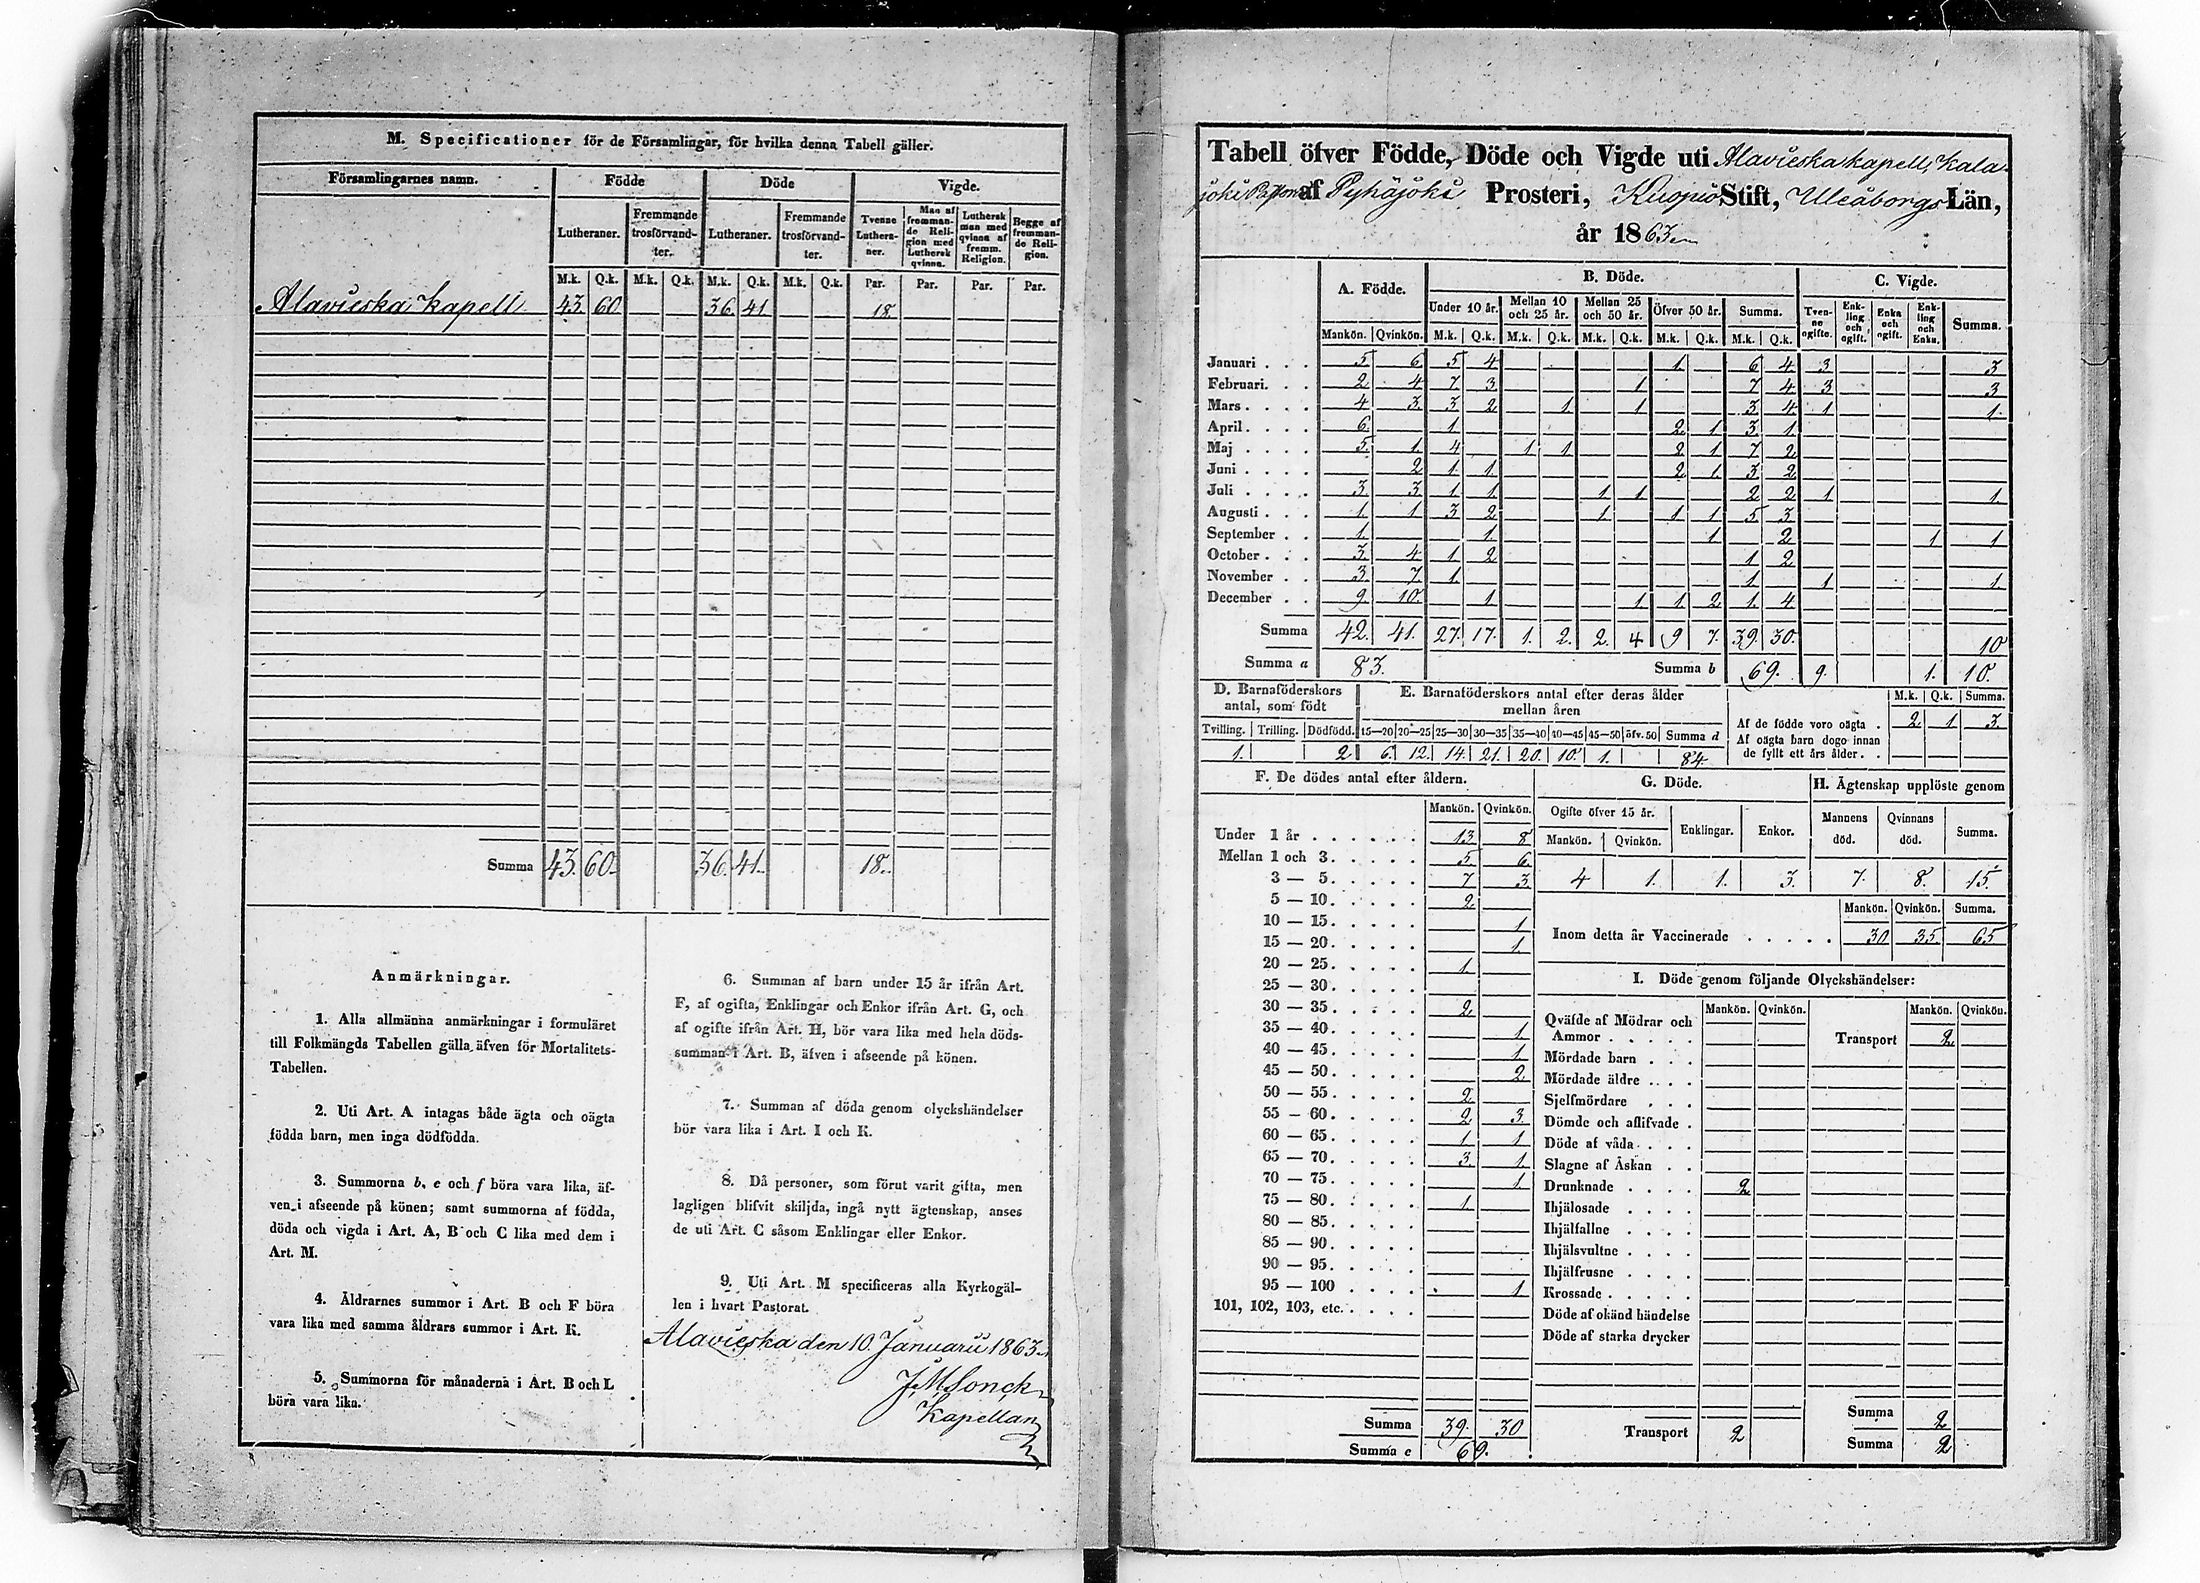 M. Specificationer för de Församlingar, för hvilka denna Tabell gäller.
Församlingarnes namn. Födde Döde Vigde.
Lutheraner. Fremmande trosförvandter. Lutheraner. Fremmande trosförvandter. Tvenne Lutheraner. Man af fremmande Religion med Luthersk qvinna. Luthersk man med qvinna af fremm. Religion. Begge af fremmande Religion.
M.k. Q.k. M.k. Q.k. M.k. Q.k. M.k. Q.k. Par. Par. Par. Par.
Alavieska kapell 43 60 36 41 18
Summa 43. 60. 36. 41. 18.
Anmärkningar.
1. Alla allmänna anmärkningar i formuläret
till Folkmängds Tabellen gälla äfven för Mortalitets-
Tabellen.
2. Uti Art. A intagas både ägta och oägta
födda barn, men inga dödfödda.
3. Summorna b, e och f böra vara lika, äf-
ven i afseende på könen; samt summorna af födda,
döda och vigda i Art. A, B och C lika med dem i
Art. M.
4. Åldrarnes summor i Art. B och F böra
vara lika med samma åldrars summor i Art. K.
5. Summorna för månaderna i Art. B och L
böra vara lika.
6. Summan af barn under 15 år ifrån Art.
F, af ogifta, Enklingar och Enkor ifrån Art. G, och
af ogifte ifrån Art. H, bör vara lika med hela döds-
summan i Art. B, äfven i afseende på könen.
7. Summan af döda genom olyckshändelser
bör vara lika i Art. I och K.
8. Då personer, som förut varit gifta, men
lagligen blifvit skiljda, ingå nytt ägtenskap, anses
de uti Art. C såsom Enklingar eller Enkor.
9. Uti Art. M specificeras alla Kyrkogäl-
len i hvart Pastorat.
Alavieska den 10. Januarii 1863
J. M. Lonck
Kapellan
Tabell öfver Födde, Döde och Vigde uti Alavieska kapell, Kala-
joki af Pyhäjoki Prosteri, Kuopio Stift, Uleåborgs Län,
år 1863
A. Födde. B. Döde. C. Vigde.
Under 10 år. Mellan 10 och 25 år. Mellan 25 och 50 år. Öfver 50 år. Summa. Tvenne ogifte. Enkling och ogift. Enka och ogift. Enkling och Enka. Summa.
Mankön. Qvinkön. M.k. Q.k. M.k. Q.k. M.k. Q.k. M.k. Q.k. M.k. Q.k.
Januari 5 6 5 4 1 6 4 3 3
Februari 2 4 7 3 1 7 4 3 3
Mars 4 3 3 2 1 1 3 4 1 1
April 6 1 2 1 3 1
Maj 5 1 4 1 1 2 1 7 2
Juni 2 1 1 2 1 3 2
Juli 3 3 1 1 1 1 2 2 1 1
Augusti 1 1 3 2 1 1 1 5 3
September 1 1 1 2 1 1
October 3 4 1 2 1 2
November 3 7 1 1 1 1
December 9 10 1 1 1 2 1 4
Summa 42. 41. 27. 17. 1. 2. 2. 4 9 7. 39. 30. 10
Summa a 83. Summa b 69. 9. 1. 10.
D. Barnaföderskors antal, som födt
Tvilling. Trilling. Dödfödd.
1. 2
E. Barnaföderskors antal efter deras ålder mellan åren
15—20 20—25 25—30 30—35 35—40 40—45 45—50 öfv. 50 Summa d
6. 12. 14. 21. 20. 10. 1. 84
M.k. Q.k. Summa.
Af de födde voro oägta . 2 1 3
Af oägta barn dogo innan
de fyllt ett års ålder.
F. De dödes antal efter åldern.
Mankön. Qvinkön.
Under 1 år 13 8
Mellan 1 och 3 5 6
3 — 5 7 3
5 — 10 2
10 — 15 1
15 — 20 1
20 — 25 1
25 — 30
30 — 35 2
35 — 40 1
40 — 45 1
45 — 50 2
50 — 55 2
55 — 60 2 3
60 — 65 1 1
65 — 70 3 1
70 — 75 1
75 — 80 1
80 — 85
85 — 90
90 — 95
95 — 100 1
101, 102, 103, etc.
Summa 39. 30
Summa e 69.
G. Döde.
Ogifte öfver 15 år. Enklingar. Enkor.
Mankön. Qvinkön.
4 1. 1. 3.
H. Ägtenskap upplöste genom
Mannens död. Qvinnans död. Summa.
7. 8. 15.
Mankön. Qvinkön. Summa.
Inom detta år Vaccinerade 30 35 65
I. Döde genom följande Olyckshändelser:
Mankön. Qvinkön. Mankön. Qvinkön.
Qväfde af Mödrar och
Ammor
Transport 2
Mördade barn
Mördade äldre
Sjelfmördare
Dömde och aflifvade
Döde af våda
Slagne af Åskan
Drunknade 2
Ihjälosade
Ihjälfallne
Ihjälsvultne
Ihjälfrusne
Krossade
Döde af okänd händelse
Döde af starka drycker
Transport 2
Summa 2
Summa 2